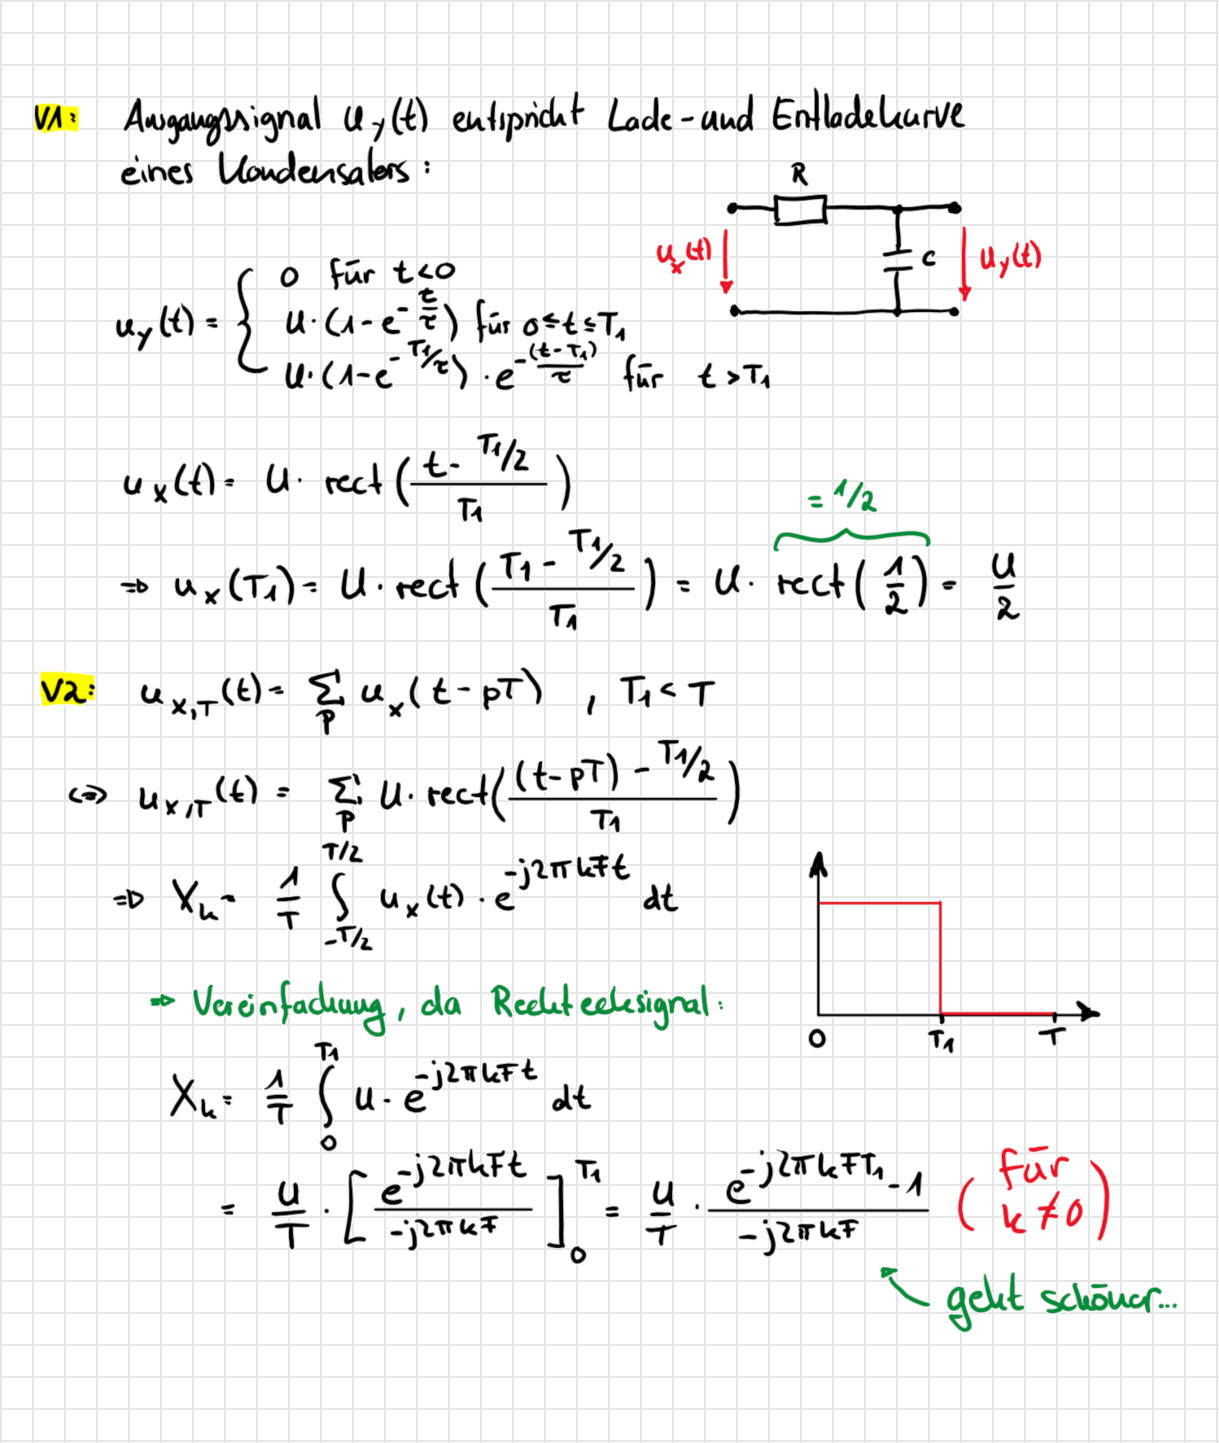 V1: Ausgangssignal u_y(t) entspricht Lade- und Entladekurve
eines Kondensators:
R
u_x(t)
C
u_y(t)
u_y(t) = { 0 für t<0
U·(1-e^(-t/τ)) für 0≤t≤T₁
U·(1-e^(-T₁/τ))·e^(-(t-T₁)/τ) für t>T₁
u_x(t) = U· rect((t-T₁/2)/T₁)
= 1/2
⇒ u_x(T₁) = U·rect((T₁-T₁/2)/T₁) = U· rect(1/2) = U/2
V2: u_x,T(t) = Σ_p u_x(t-pT) , T₁<T
⇔ u_x,T(t) = Σ_p U·rect(((t-pT)-T₁/2)/T₁)
⇒ X_k = 1/T ∫_(-T/2)^(T/2) u_x(t)·e^(-j2πkFt) dt
⇒ Vereinfachung, da Rechtecksignal:
0 T₁ T
X_k = 1/T ∫_0^(T₁) U·e^(-j2πkFt) dt
= U/T · [e^(-j2πkFt)/(-j2πkF)]_0^(T₁) = U/T · (e^(-j2πkFT₁)-1)/(-j2πkF) (für k≠0)
geht schöner...